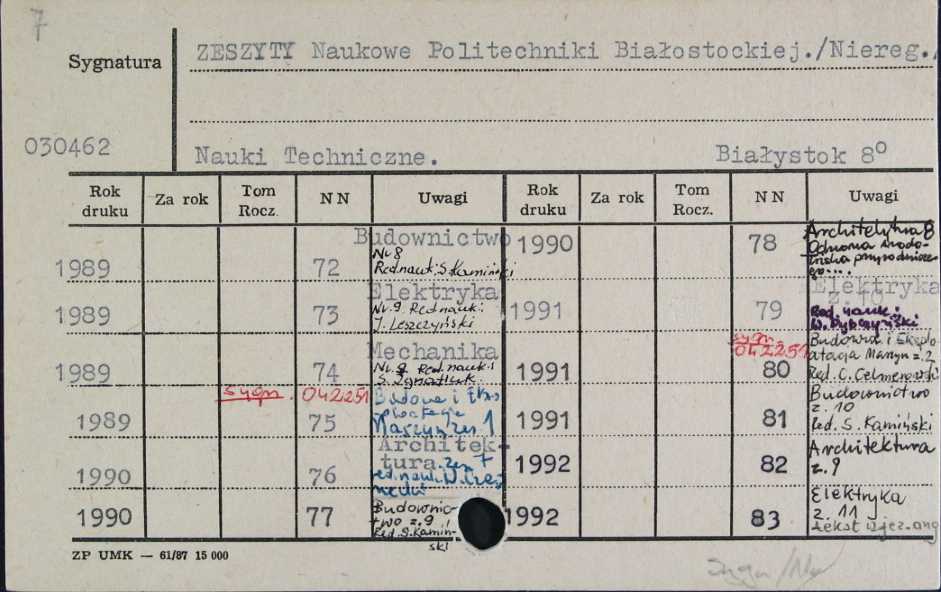 7
Sygnatura
ZESZYTY Naukowe Politechniki Białostockiej./Niereg./
030462
Nauki Techniczne. Białystok 8°
Rok druku Za rok Tom Rocz. NN Uwagi Rok druku Za rok Tom Rocz. NN Uwagi
1989 72 Budownictwo
Nr 8
Red nauk: S. Kamiński
1989 73 Elektryka
Nr 9. Red nauk:
J. Leszczyński
1989 74 Mechanika
Nr 9 Red nauk:
sygn. 042251
1989 75 Budowa i
Maszyn zesz. 1
1990 76 Architek-
tura. zesz 7
red. nauk. W.
1990 77 Budownic-
two z. 9
Red. S. Kamiń-
ski
1990 78 Architektura 8
Ochrona środo-
wiska przyrodnicze-
go...
1991 79 Elektryka
z. 10
Red. nauk:
sygn.
042251
1991 80 Budowa i Ekspло-
atacja Maszyn z. 2
Red. C.
1991 81 Budownictwo
z. 10
Red. S. Kamiński
1992 82 Architektura
z. 9
1992 83 Elektryka
z. 11
tekst w jęz. ang
ZP UMK — 61/87 15 000